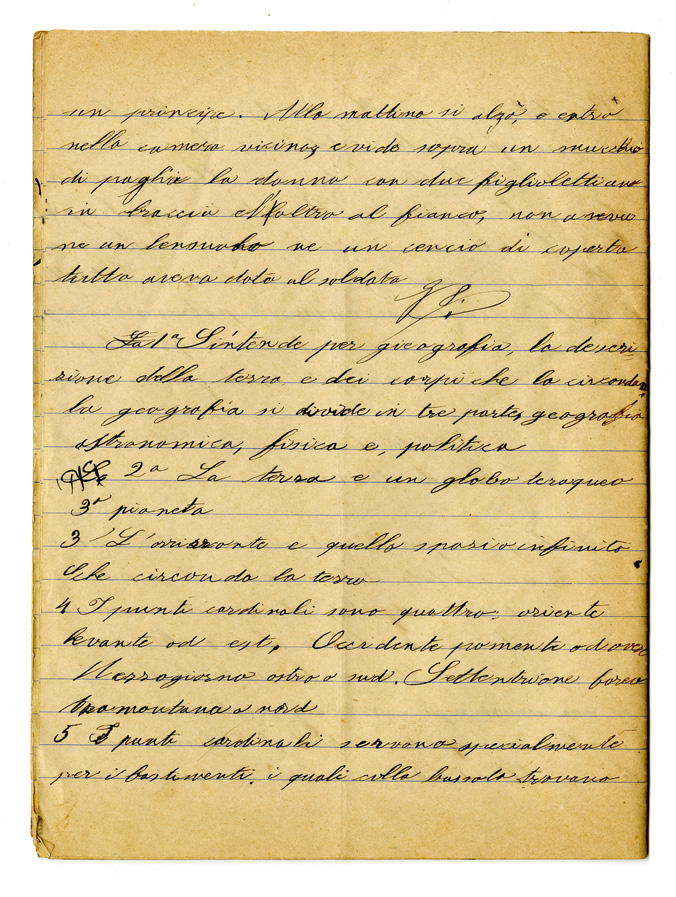 un principe. Alla mattina si alzò, e entrò
nella camera vicina, e vide sopra un mucchio
di paglia la donna con due figlioletti uno
in braccia e l'altro al fianco, non aveva
ne un lensuolo ne un cencio di coperta
tutto aveva dato al soldato
La 1ª S'intende per gieografia, la descri
zione della terra e dei corpi che la circondano
la geografia si divide in tre parte, geografia
astronomica, fisica e, politica
2ª La terra e un globo teraqueo
3ª pianeta
3 L'orrizzonte e quello spazio infinito
che circonda la terra
4 I punti cardinali sono quattro: oriente
levante od est, Occidente ponente od ovest
Mezzogiorno ostro o sud. Settentrione borea
tramontana o nord
5 I punti cardinali servono specialmente
per i bastimenti i quali colla bussola trovano